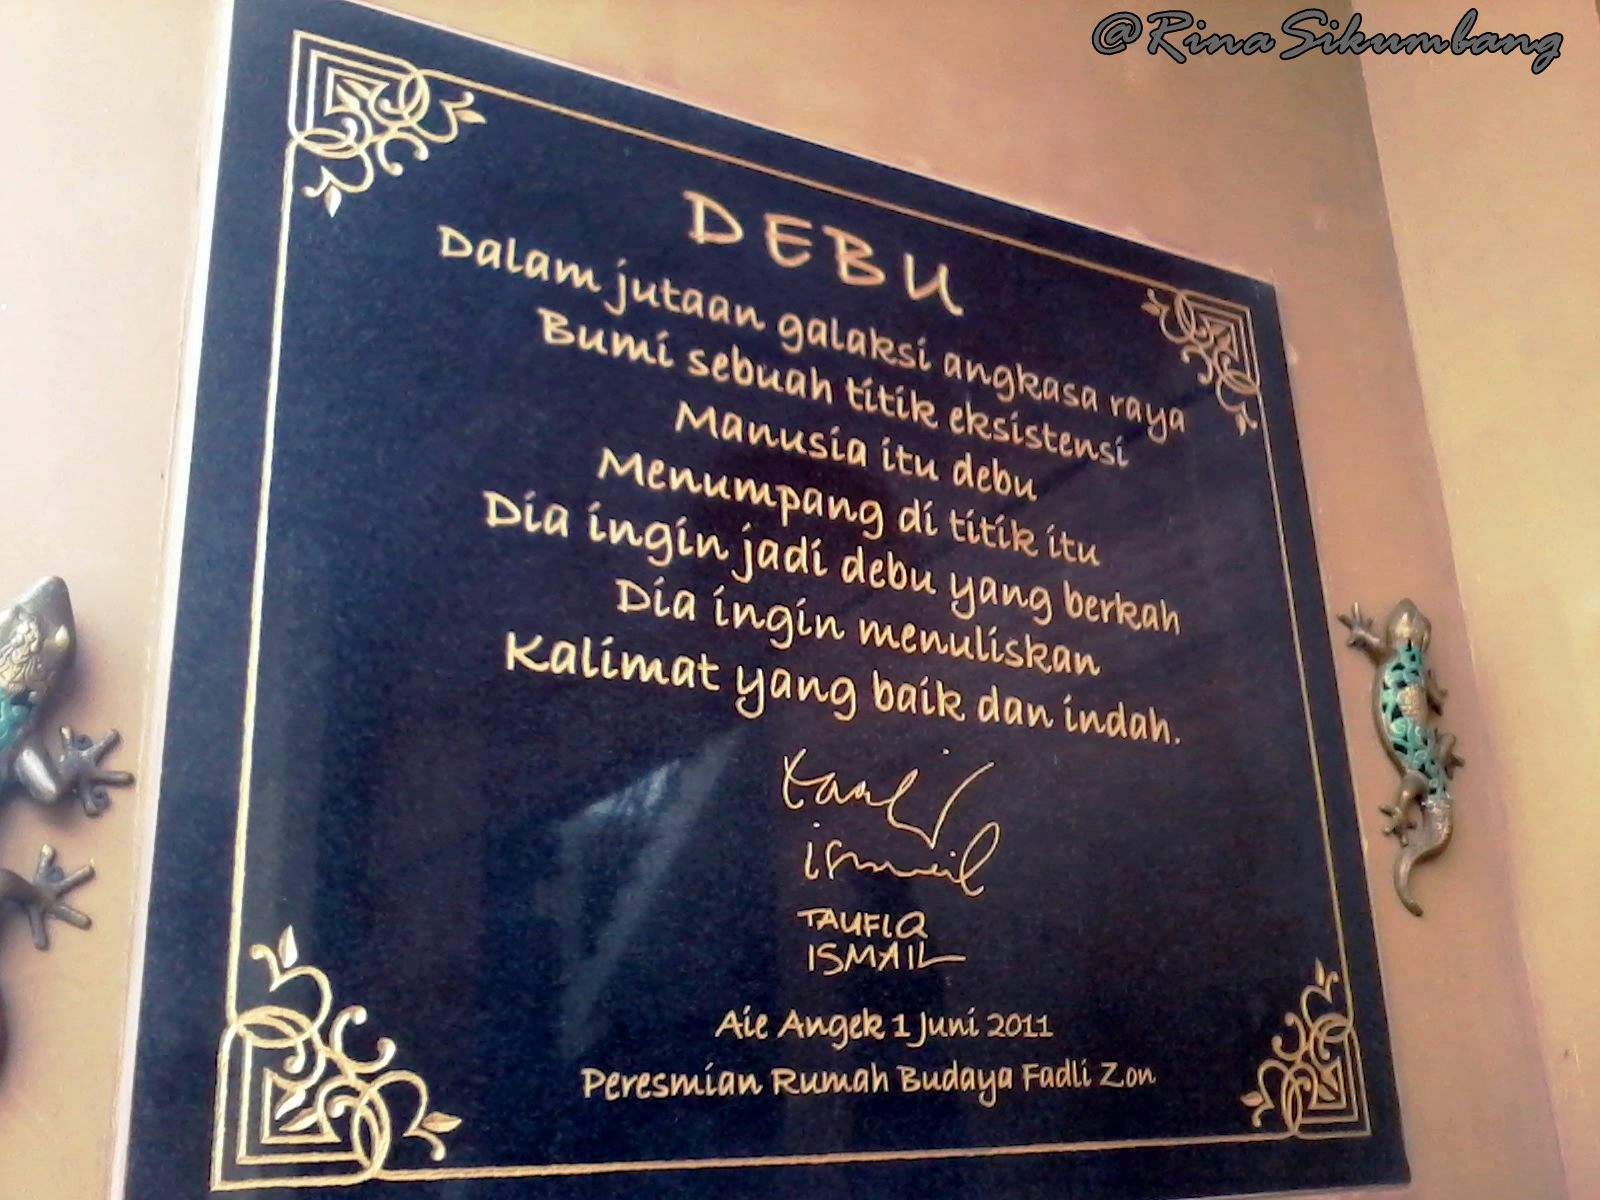 @RinaSikumbang
DEBU
Dalam jutaan galaksi angkasa raya
Bumi sebuah titik eksistensi
Manusia itu debu
Menumpang di titik itu
Dia ingin jadi debu yang berkah
Dia ingin menuliskan
Kalimat yang baik dan indah.
TAUFIQ
ISMAIL
Aie Angek 1 Juni 2011
Peresmian Rumah Budaya Fadli Zon